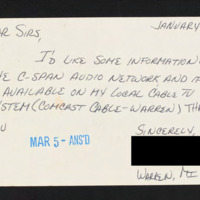 JANUARY
AR SIRS,
I'D LIKE SOME INFORMATION
HE C-SPAN AUDIO NETWORK AND I
AVAILABLE ON MY LOCAL CABLE TV
STEM (COMCAST CABLE-WARREN) TH
U
MAR 5 - ANS'D
SINCERELY,
WARREN, MI